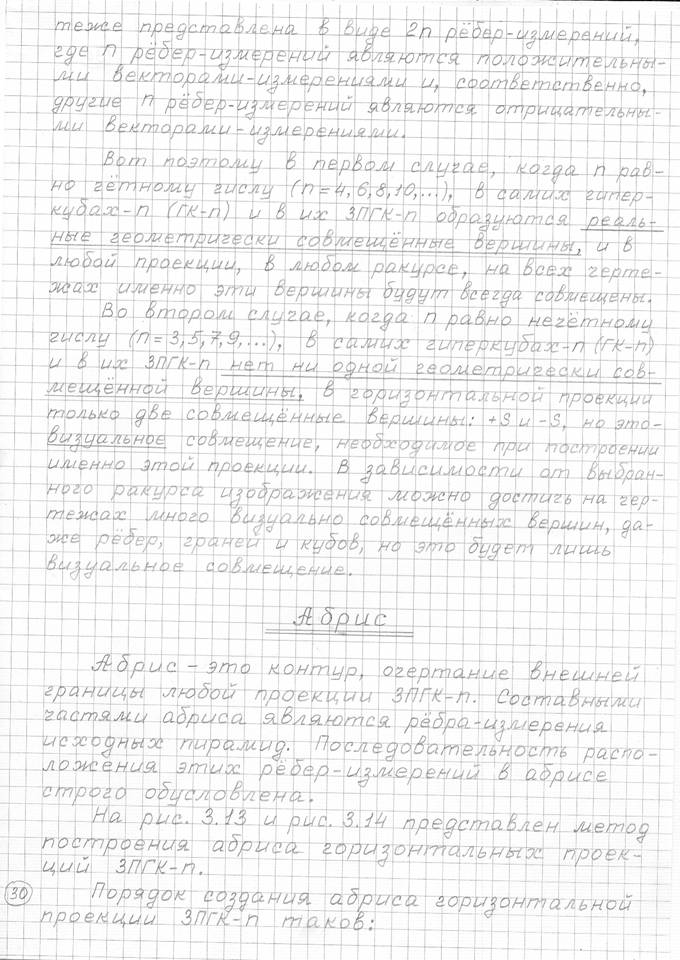 теже представлена в виде 2n рёбер-измерений,
где n рёбер-измерений являются положительны-
ми векторами-измерениями и, соответственно,
другие n рёбер-измерений являются отрицательны-
ми векторами-измерениями.
Вот поэтому в первом случае, когда n рав-
но чётному числу (n=4,6,8,10,...), в самих гипер-
кубах-n (ГК-n) и в их ЗПГК-n образуются реаль-
ные геометрически совмещённые вершины, и в
любой проекции, в любом ракурсе, на всех черте-
жах именно эти вершины будут всегда совмещены.
Во втором случае, когда n равно нечётному
числу (n=3,5,7,9,...), в самих гиперкубах-n (ГК-n)
и в их ЗПГК-n нет ни одной геометрически сов-
мещённой вершины, в горизонтальной проекции
только две совмещённые вершины: +S и -S, но это-
визуальное совмещение, необходимое при построении
именно этой проекции. В зависимости от выбран-
ного ракурса изображения можно достичь на чер-
тежах много визуально совмещённых вершин, да-
же рёбер, граней и кубов, но это будет лишь
визуальное совмещение.
Абрис
Абрис – это контур, очертание внешней
границы любой проекции ЗПГК-n. Составными
частями абриса являются рёбра-измерения
исходных пирамид. Последовательность распо-
ложения этих рёбер-измерений в абрисе
строго обусловлена.
На рис. 3.13 и рис. 3.14 представлен метод
построения абриса горизонтальных проек-
ций ЗПГК-n.
30 Порядок создания абриса горизонтальной
проекции ЗПГК-n таков: